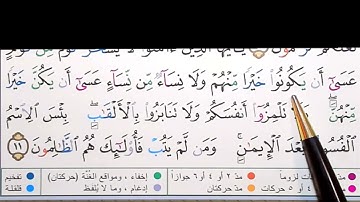 يَٰٓأَيُّهَا ٱلَّذِينَ ءَامَنُوا۟ لَا يَسْخَرْ قَوْمٌ
عَسَىٰٓ أَن يَكُونُوا۟ خَيْرًا مِّنْهُمْ وَلَا نِسَآءٌ مِّن نِّسَآءٍ عَسَىٰٓ أَن يَكُنَّ خَيْرًا
مِّنْهُنَّ تَلْمِزُوٓا۟ أَنفُسَكُمْ وَلَا تَنَابَزُوا۟ بِٱلْأَلْقَٰبِ بِئْسَ ٱلِٱسْمُ
ٱلْفُسُوقُ بَعْدَ ٱلْإِيمَٰنِ وَمَن لَّمْ يَتُبْ فَأُو۟لَٰٓئِكَ هُمُ ٱلظَّٰلِمُونَ ١١
لزوماً مدّ ٢ أو ٤ أو ٦ جوازاً إخفاء، ومواقع الغُنَّة (حركتان) تفخيم
٥ حركات مدّ حركتان إدغام، وما لا يُلفظ قلقلة